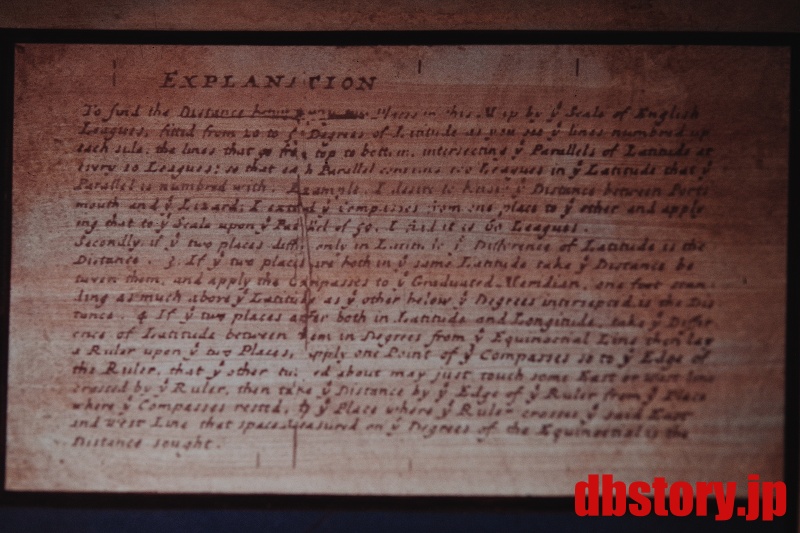 EXPLANATION
To find the Distance between any two Places in this Map by ẏ Scale of English
Leagues, fitted from 20 to 5 Degrees of Latitude as you see ẏ lines numbred up
each side, the lines that go from top to bottom, intersecting ẏ Parallels of Latitude at
every 20 Leagues; so that each Parallel contains 100 Leagues in ẏ Latitude that ẏ
Parallel is numbred with. Example, I desire to know ẏ Distance between Ports
mouth and ẏ Lizard; I extend ẏ Compasses from one place to ẏ other and apply
ing that to ẏ Scale upon ẏ Parallel of 50, I find it is 60 Leagues.
Secondly if ẏ two places differ only in Latitude ẏ Difference of Latitude is the
Distance. 3. If ẏ two places are both in ẏ same Latitude take ẏ Distance be
tween them, and apply the Compasses to ẏ Graduated Meridian, one foot stan
ding as much above ẏ Latitude as ẏ other below ẏ Degrees intercepted is the Dis
tance. 4 If ẏ two places differ both in Latitude and Longitude, take ẏ Differ
ence of Latitude between them in Degrees from ẏ Equinoctial Line then lay
a Ruler upon ẏ two Places, apply one Point of ẏ Compasses so to ẏ Edge of
the Ruler, that ẏ other turned about may just touch some East or West line
crossed by ẏ Ruler, then take ẏ Distance by ẏ Edge of ẏ Ruler from ẏ Place
where ẏ Compasses rested, to ẏ Place where ẏ Ruler crosses ẏ said East
and West Line that space measured on ẏ Degrees of the Equinoctial is the
Distance sought.
dbstory.jp